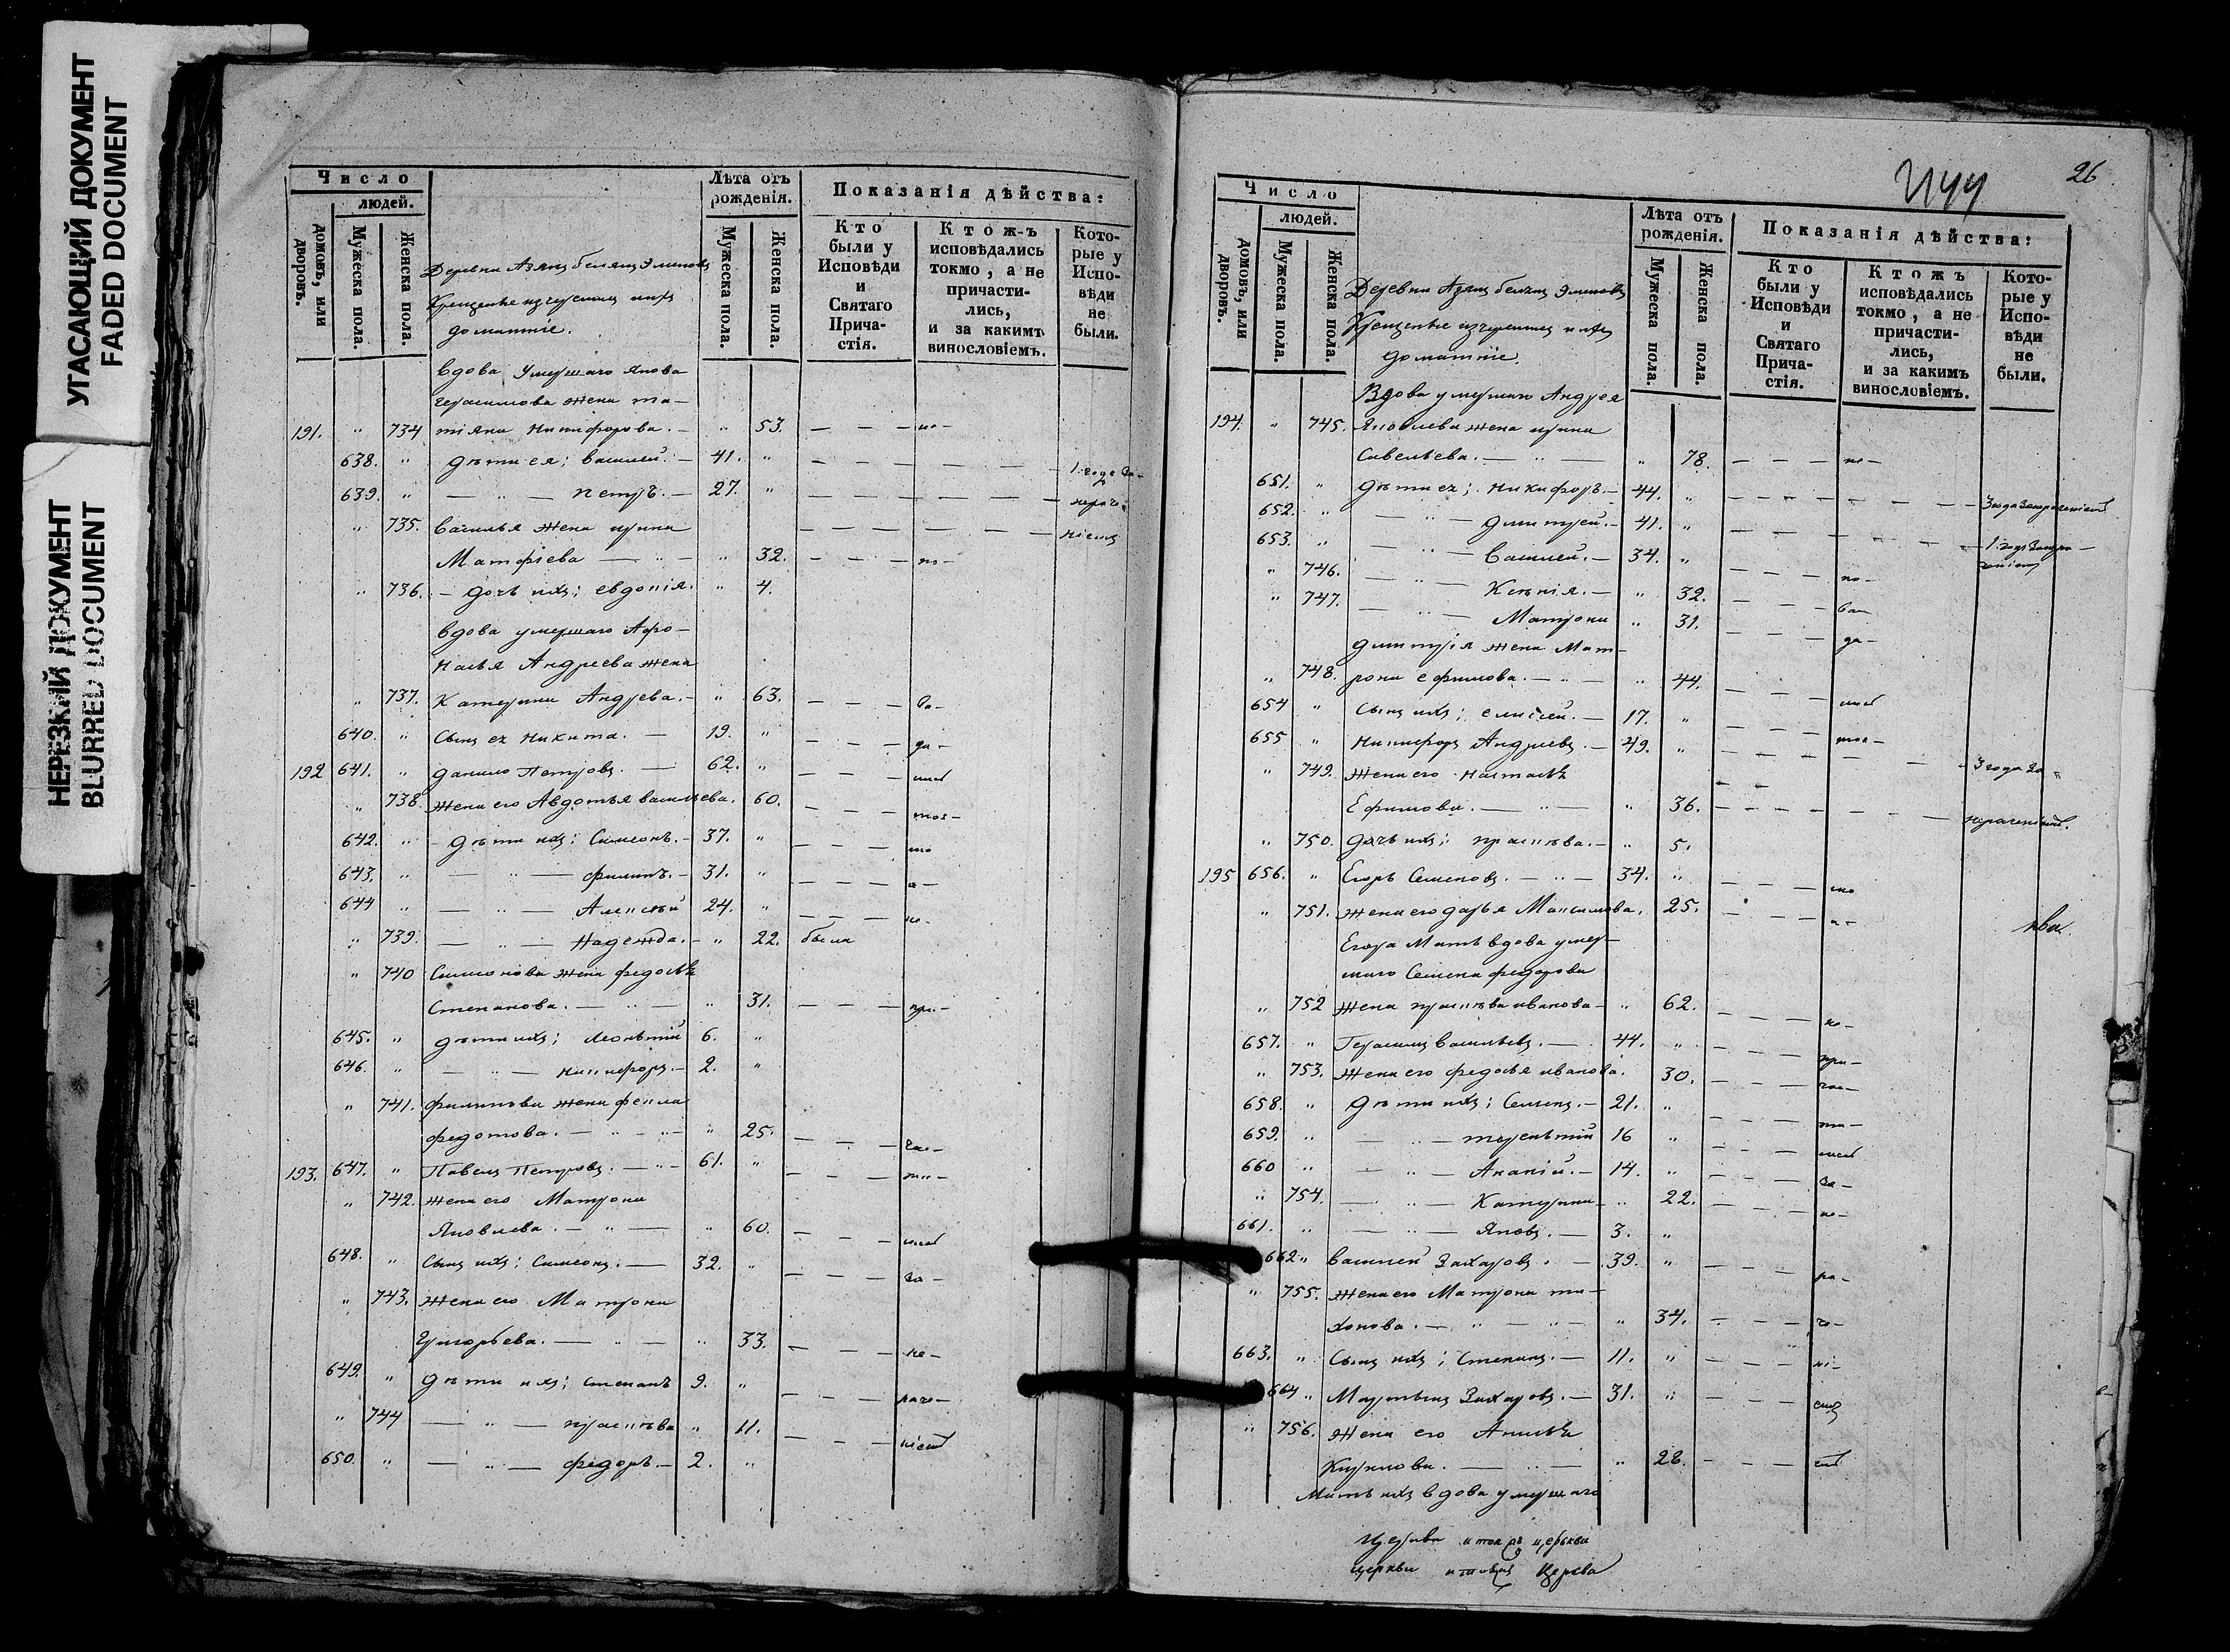 УГАСАЮЩИЙ ДОКУМЕНТ
FADED DOCUMENT
НЕРЕЗКИЙ ДОКУМЕНТ
BLURRED DOCUMENT
Число
людей.
домовъ, или дворовъ.
Мужеска пола.
Женска пола.
Лѣта отъ рожденія.
Мужеска пола.
Женска пола.
Показанія дѣйства:
Кто были у Исповѣди и Святаго Причастія.
Кто ж-ъ исповѣдались токмо, а не причастились, и за какимъ винословіемъ.
Которые у Исповѣди не были.
Деревни
домашніе.
вдова умершаго Якова
Герасимова жена та–
191. " 734 тіяна Никифорова. – " 53. – – – но–
638. " дѣти ея; василей. – 41. " – – – – – – 1. годъ за–
639. " — " — петръ. – 27. " – – – – – –
" 735. василья жена ирина
Матфіева — " – " 32. – – – по–
" 736. – дочь ихъ; евдокія. " 4.
вдова умершаго Афо–
насья Андреева жена
" 737. Катерина Андреева. – " 63. – – – во–
640. " Сынъ ея Никита. — 19. " – – – да–
192 641. " данило Петровъ. — 62. " – – –
" 738. жена его Авдотья васильева. 60. – – –
642. " – дѣти ихъ; Симеонъ. – 37. " – – –
643. " — " — филипъ. – 31. " – – – а–
644 " — " — Алексѣй 24. " – – – не–
" 739. — " — Надежда. – " 22. была
" 740 Симіонова жена федосья
Степанова. — " — " 31. – – – при–
645. " дѣти ихъ; Леонтій 6. "
646. " — " — никифоръ. – 2. "
" 741. филипова жена фекла
федотова. — " – " – " 25. – – – час–
193. 647. " Павелъ Петровъ. — " – 61. " – – – ти–
" 742. жена его Матрона
Яковлева. – " — " 60. – – –
648. " Сынъ ихъ; Симеонъ. — 32. " – – – за–
" 743. жена его Матрона
Григорьева. — " — " 33. – – – не–
649. " дѣти ихъ; степанъ 9. " – – – раче–
" 744 — " — прасковья " 11. – – – ніемъ
650. " — " — федоръ. – 2. "
26
Число
людей.
домовъ, или дворовъ.
Мужеска пола.
Женска пола.
Лѣта отъ рожденія.
Мужеска пола.
Женска пола.
Показанія дѣйства:
Кто были у Исповѣди и Святаго Причастія.
Кто жъ исповѣдались токмо, а не причастились, и за какимъ винословіемъ.
Которые у Исповѣди не были.
Деревни
домашніе
Вдова умершаго Андрея
194. " 745. Яковлева жена ирина
Савельева. — " — " 78. – – – не–
651. " дѣти ея; Никифоръ. – 44. " – – – – – – 3 года занерачениемъ
652. " — " — дмитрей. – 41. " – – – – – – 1. годъ
653. " — " — Василей. – 34. "
" 746. — " — Ксенія. – " 32. – – – по–
" 747. — " — Матрона " 31. – – – во–
дмитрія жена Мат– да–
" 748. рона ефимова. – " – " 44. – – –
654 " Сынъ ихъ; елисей. – 17. " – – –
655 " никифоръ Андреевъ. – 49. " – – – – – 3 года за
" 749. жена его наталья
Ефимова. — " — " 36. – – – – – – нерачениемъ.
" 750. дочь ихъ; прасковья. – " 5.
195 656. " Егоръ Семеновъ. — " – 34. " – – –
" 751. жена его дарья Максимова. 25. – – – а–
Егора Мать вдова умер–
шаго Семена федорова
" 752 жена прасковья иванова– " 62. – – – не–
657. " Герасимъ васильевъ. — 44. " – – – при–
" 753. жена его федосья иванова. 30. – – – час–
658. " дѣти ихъ; Семенъ. – 21. " – – – ти–
659. " — " — терентій 16 " – – –
660 " — " — Ананій. – 14. " – – – за–
" 754. — " — Катерина " 22. – – – не–
661. " — " — Яковъ. – 3. "
662 " василей Захаровъ. – 39. " – – – ра–
" 755. жена его Матрона ти–
хонова. – " – " – " 34. – – – че–
663. " Сынъ ихъ; Степанъ. – 11. " – – – ні–
664 " Мартынъ Захаровъ. – 31. " – – – емъ
" 756. жена его Анисья
Кирилова. — " — " 28. – – –
Мать ихъ вдова умершаго
церкви
церкви